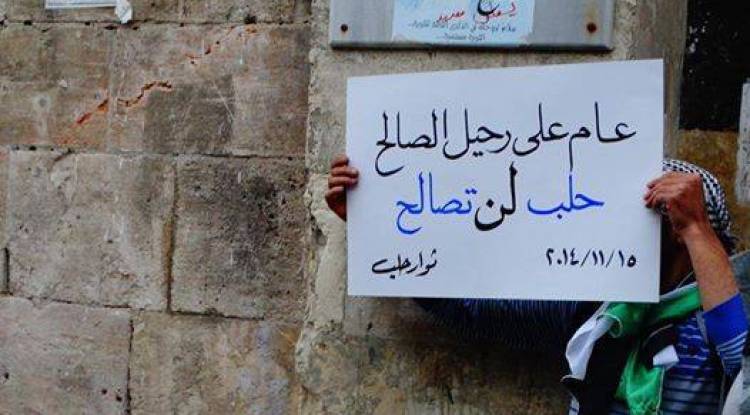 عام على رحيل الصالح
حلب لن تصالح
٢٠١٤/١١/١٥
ثوار حلب